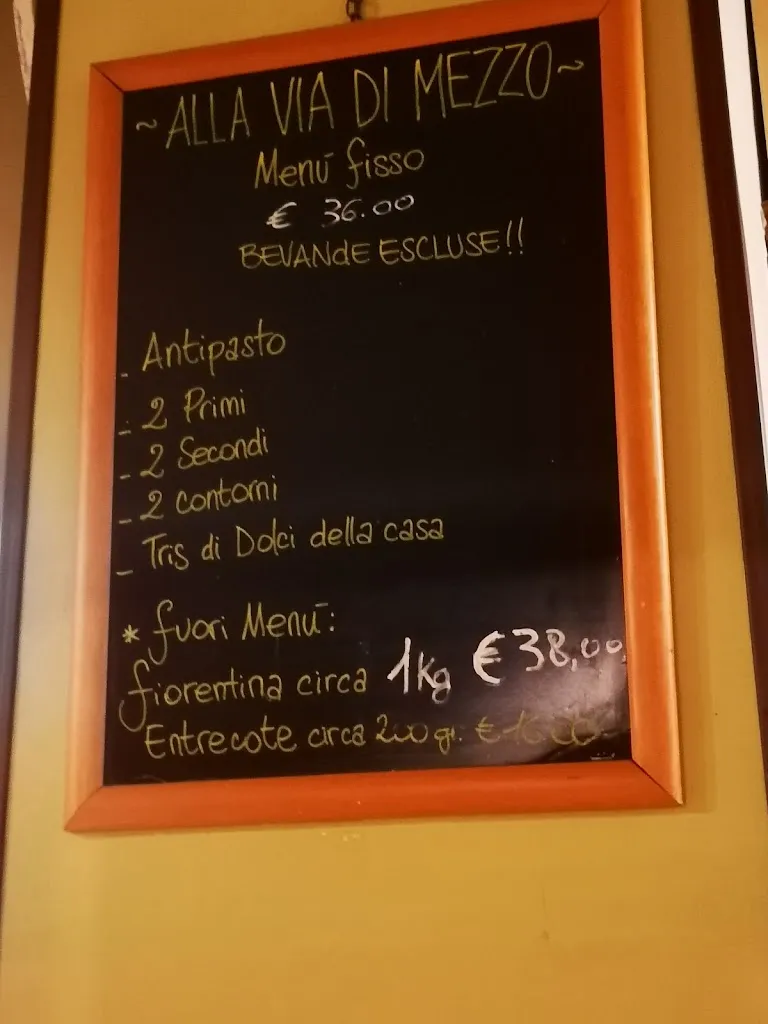 ~ ALLA VIA DI MEZZO ~
Menú fisso
€ 36.00
BEVANdE ESCLUSE!!
- Antipasto
- 2 Primi
- 2 Secondi
- 2 contorni
- Tris di Dolci della casa
* fuori Menú:
fiorentina circa 1kg € 38,00
Entrecote circa 200 gr. €